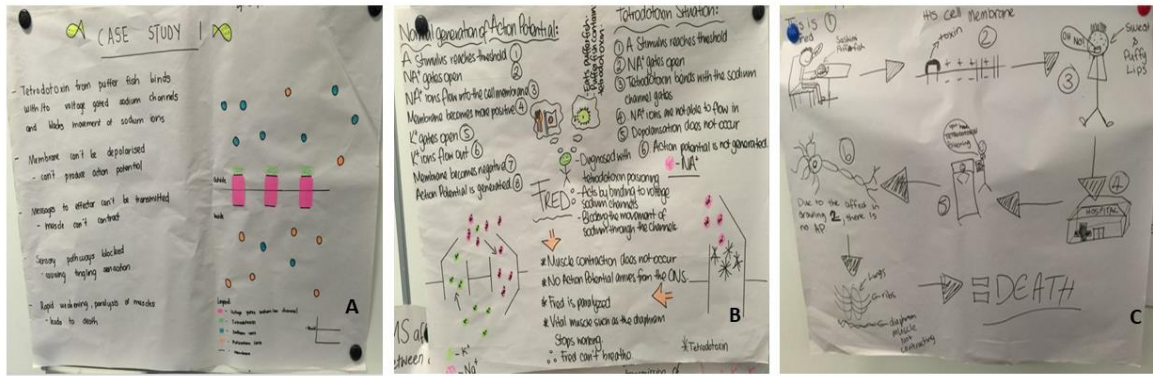 CASE STUDY 1
- Tetrodotoxin from puffer fish binds
with/to voltage gated sodium channels
and blocks movement of sodium ions
- Membrane can't be depolarised
- can't produce action potential
- Messages to effector can't be transmitted
- muscle can't contract
- Sensory pathways blocked
- causing tingling sensation
- Rapid weakening, paralysis of muscles
- leads to death
outside
inside
Legend
- Voltage gate sodium ion channel
- Tetrodotoxin
- Sodium ions
- Potassium ions
- Membrane
A
Normal generation of Action Potential:
A stimulus reaches threshold 1
NA+ gates open 2
NA+ ions flow into the cell membrane 3
Membrane becomes more positive 4
K+ gates open 5
K+ ions flow out 6
Membrane becomes negative 7
Action Potential is generated 8
- Eats puffer fish-
Tetrodotoxin Situation:
1 A Stimulus reaches threshold
2 NA+ gates open
3 Tetrodotoxin bonds with the sodium
channel gates
4 NA+ ions are not able to flow in
5 Depolarisation does not occur
6 Action potential is not generated
- NA+
FRED:
- Diagnosed with
tetrodotoxin poisoning
- Acts by binding to voltage
sodium channels
- Blocking the movement of
sodium through the channels
* Muscle contraction does not occur
* No Action Potential arrives from the CNS
* Fred is paralyzed
* Vital muscle such as the diaphragm
Stops working
∴ Fred can't breathe
- K+
- Na+
* Tetrodotoxin
B
This is 1
His Cell Membrane
toxin
2
OH NO!
Sweat
&
Puffy
Lips
3
4
HOSPITAL
5
6
Due to the affect in
drawing 2, there is
no AP
Lungs
ribs
diaphram
muscle
not
contracting
= DEATH
C